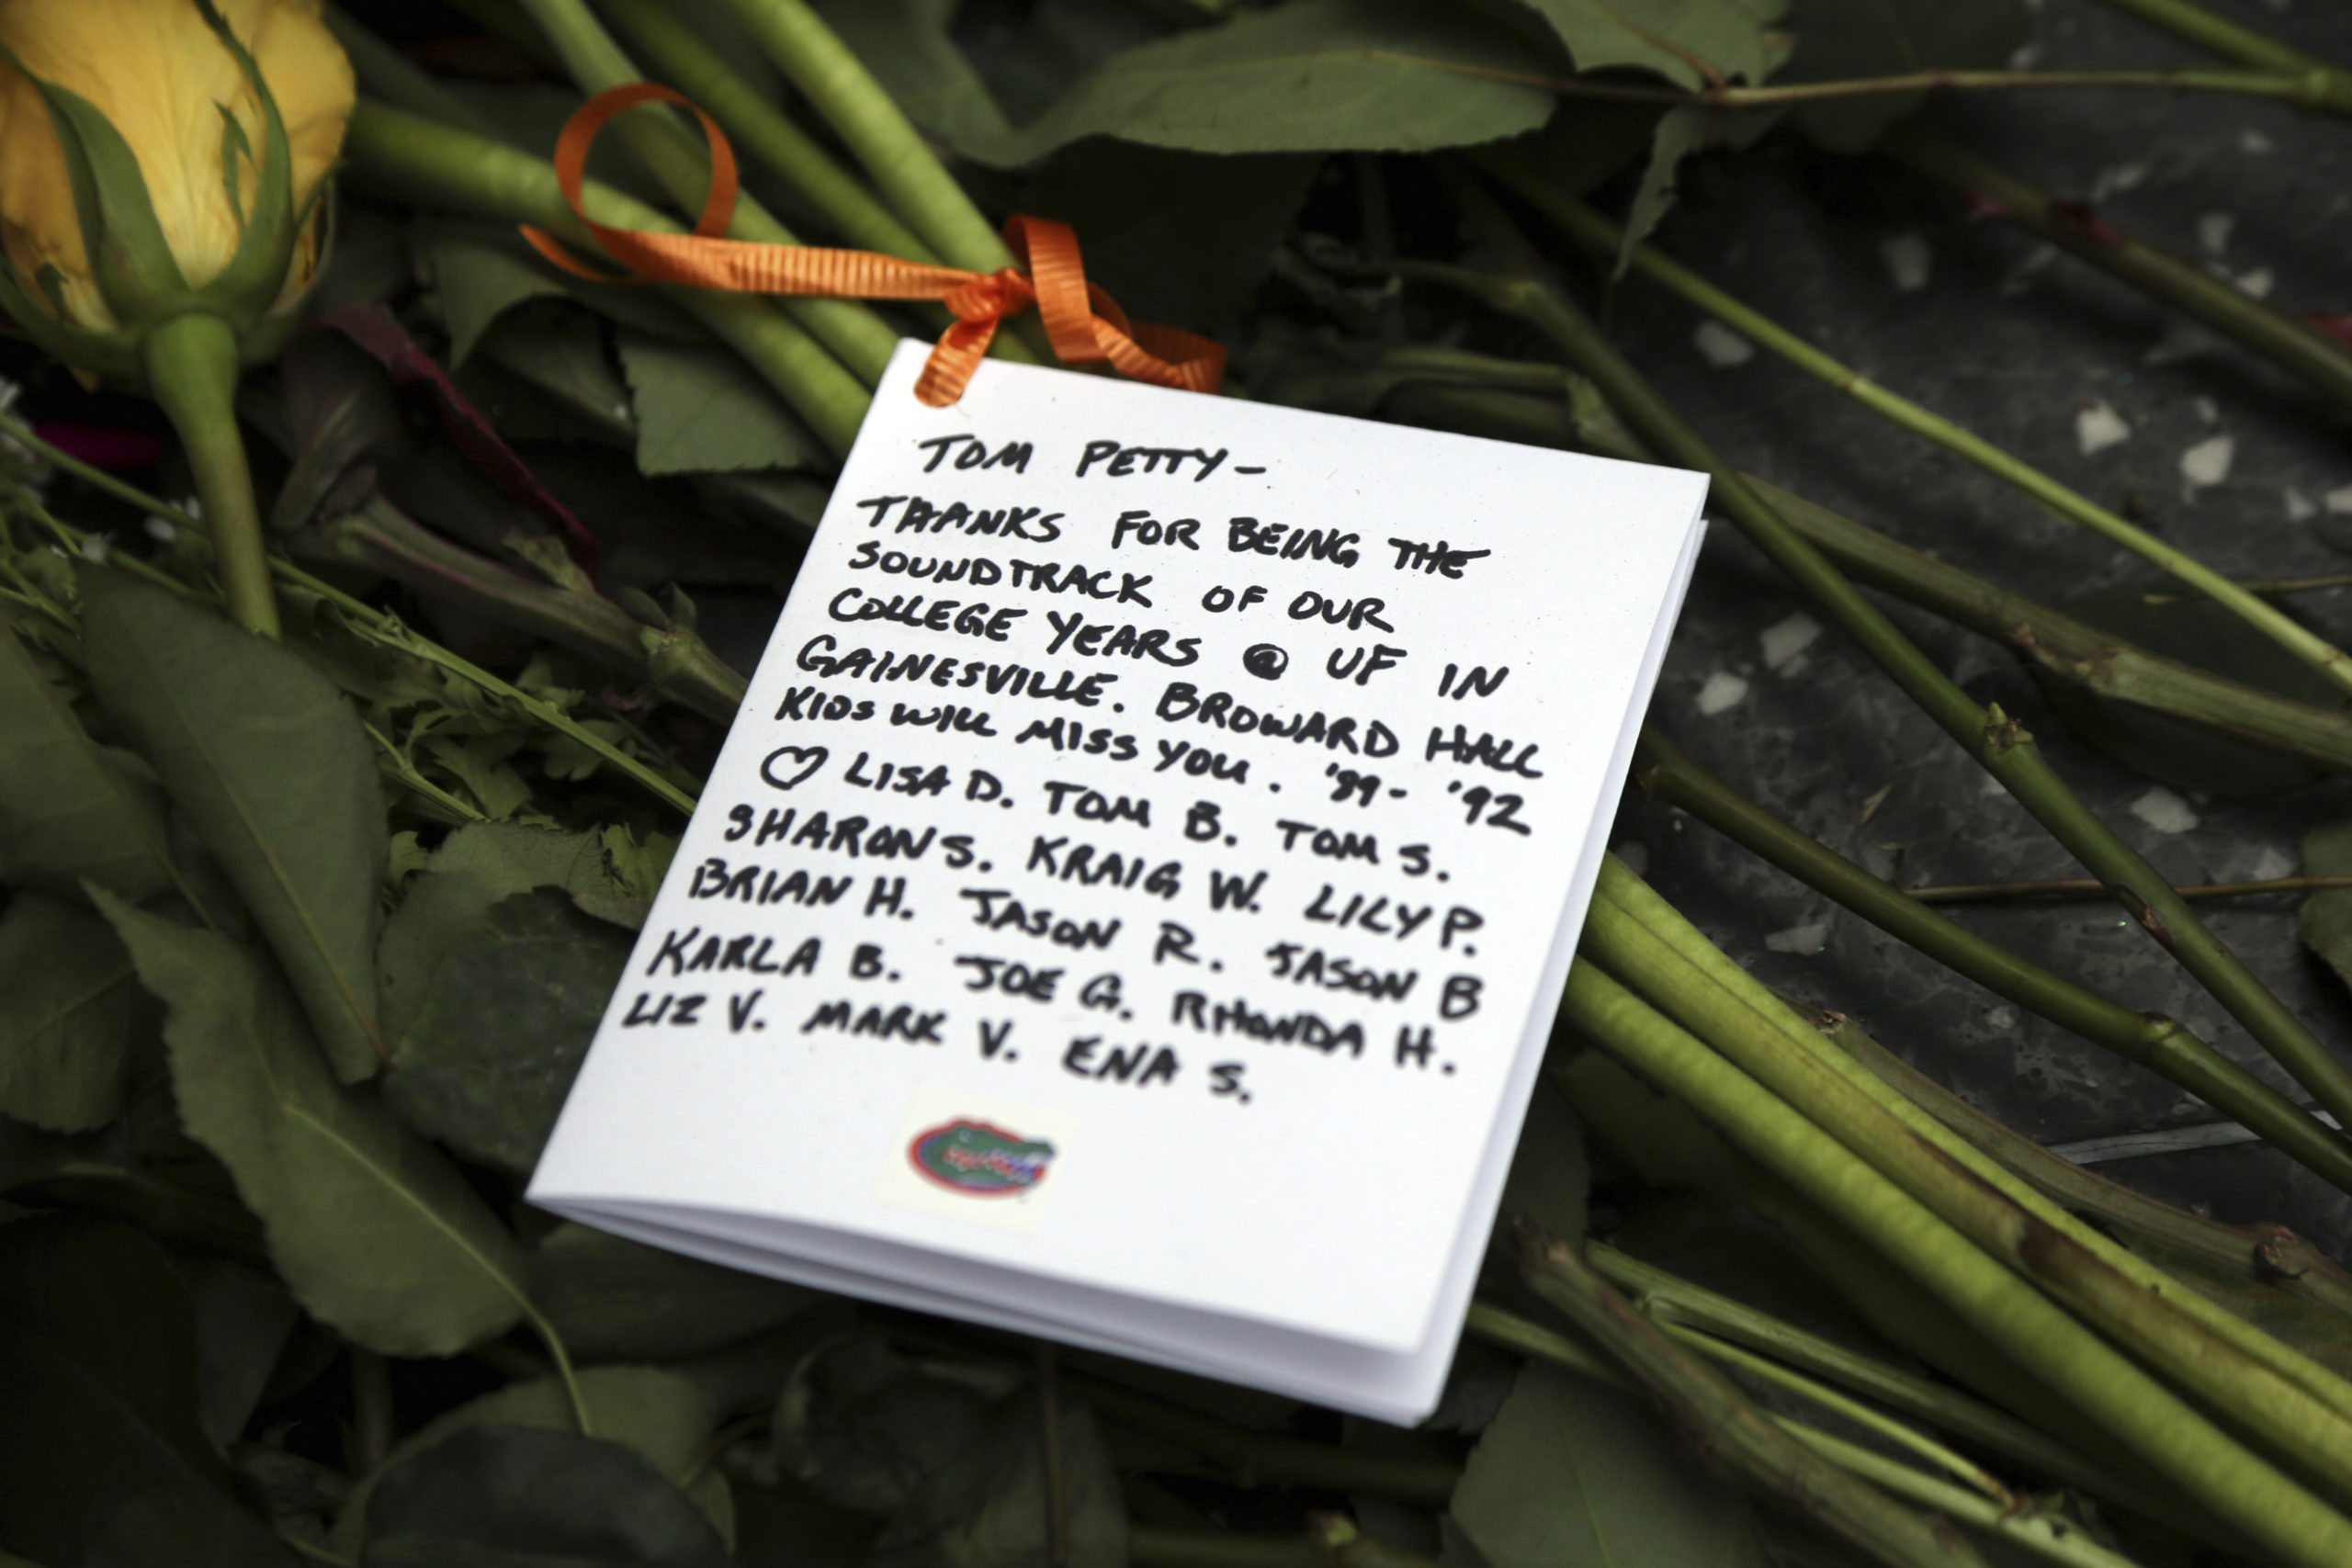 TOM PETTY-
THANKS FOR BEING THE
SOUNDTRACK OF OUR
COLLEGE YEARS @ UF IN
GAINESVILLE. BROWARD HALL
KIDS WILL MISS YOU. '89-'92
♡ LISA D. TOM B. TOM S.
SHARON S. KRAIG W. LILY P.
BRIAN H. JASON R. JASON B
KARLA B. JOE G. RHONDA H.
LIZ V. MARK V. ENA S.